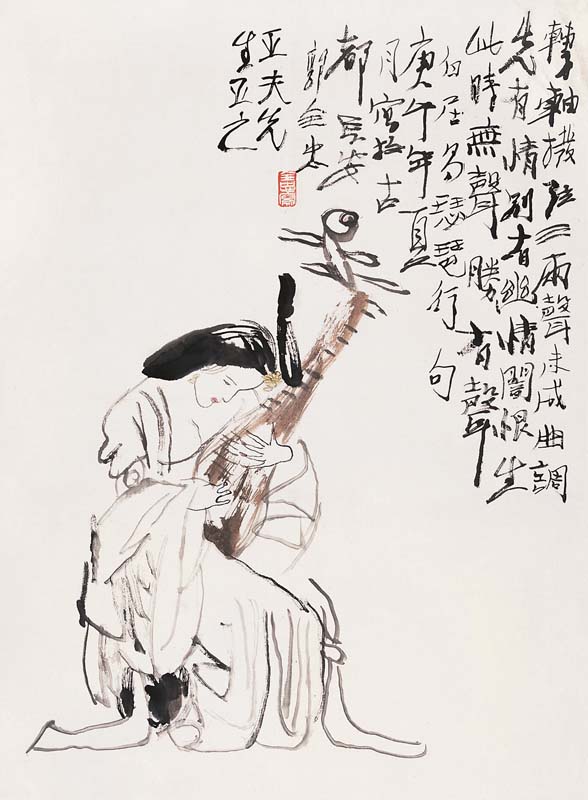 轉軸撥弦三兩聲未成曲調
先有情别有幽情闇恨生
此時無聲勝有聲
白居易琵琶行句
庚午年夏
月寫於古
都長安
郭全忠
亚夫先
生正之